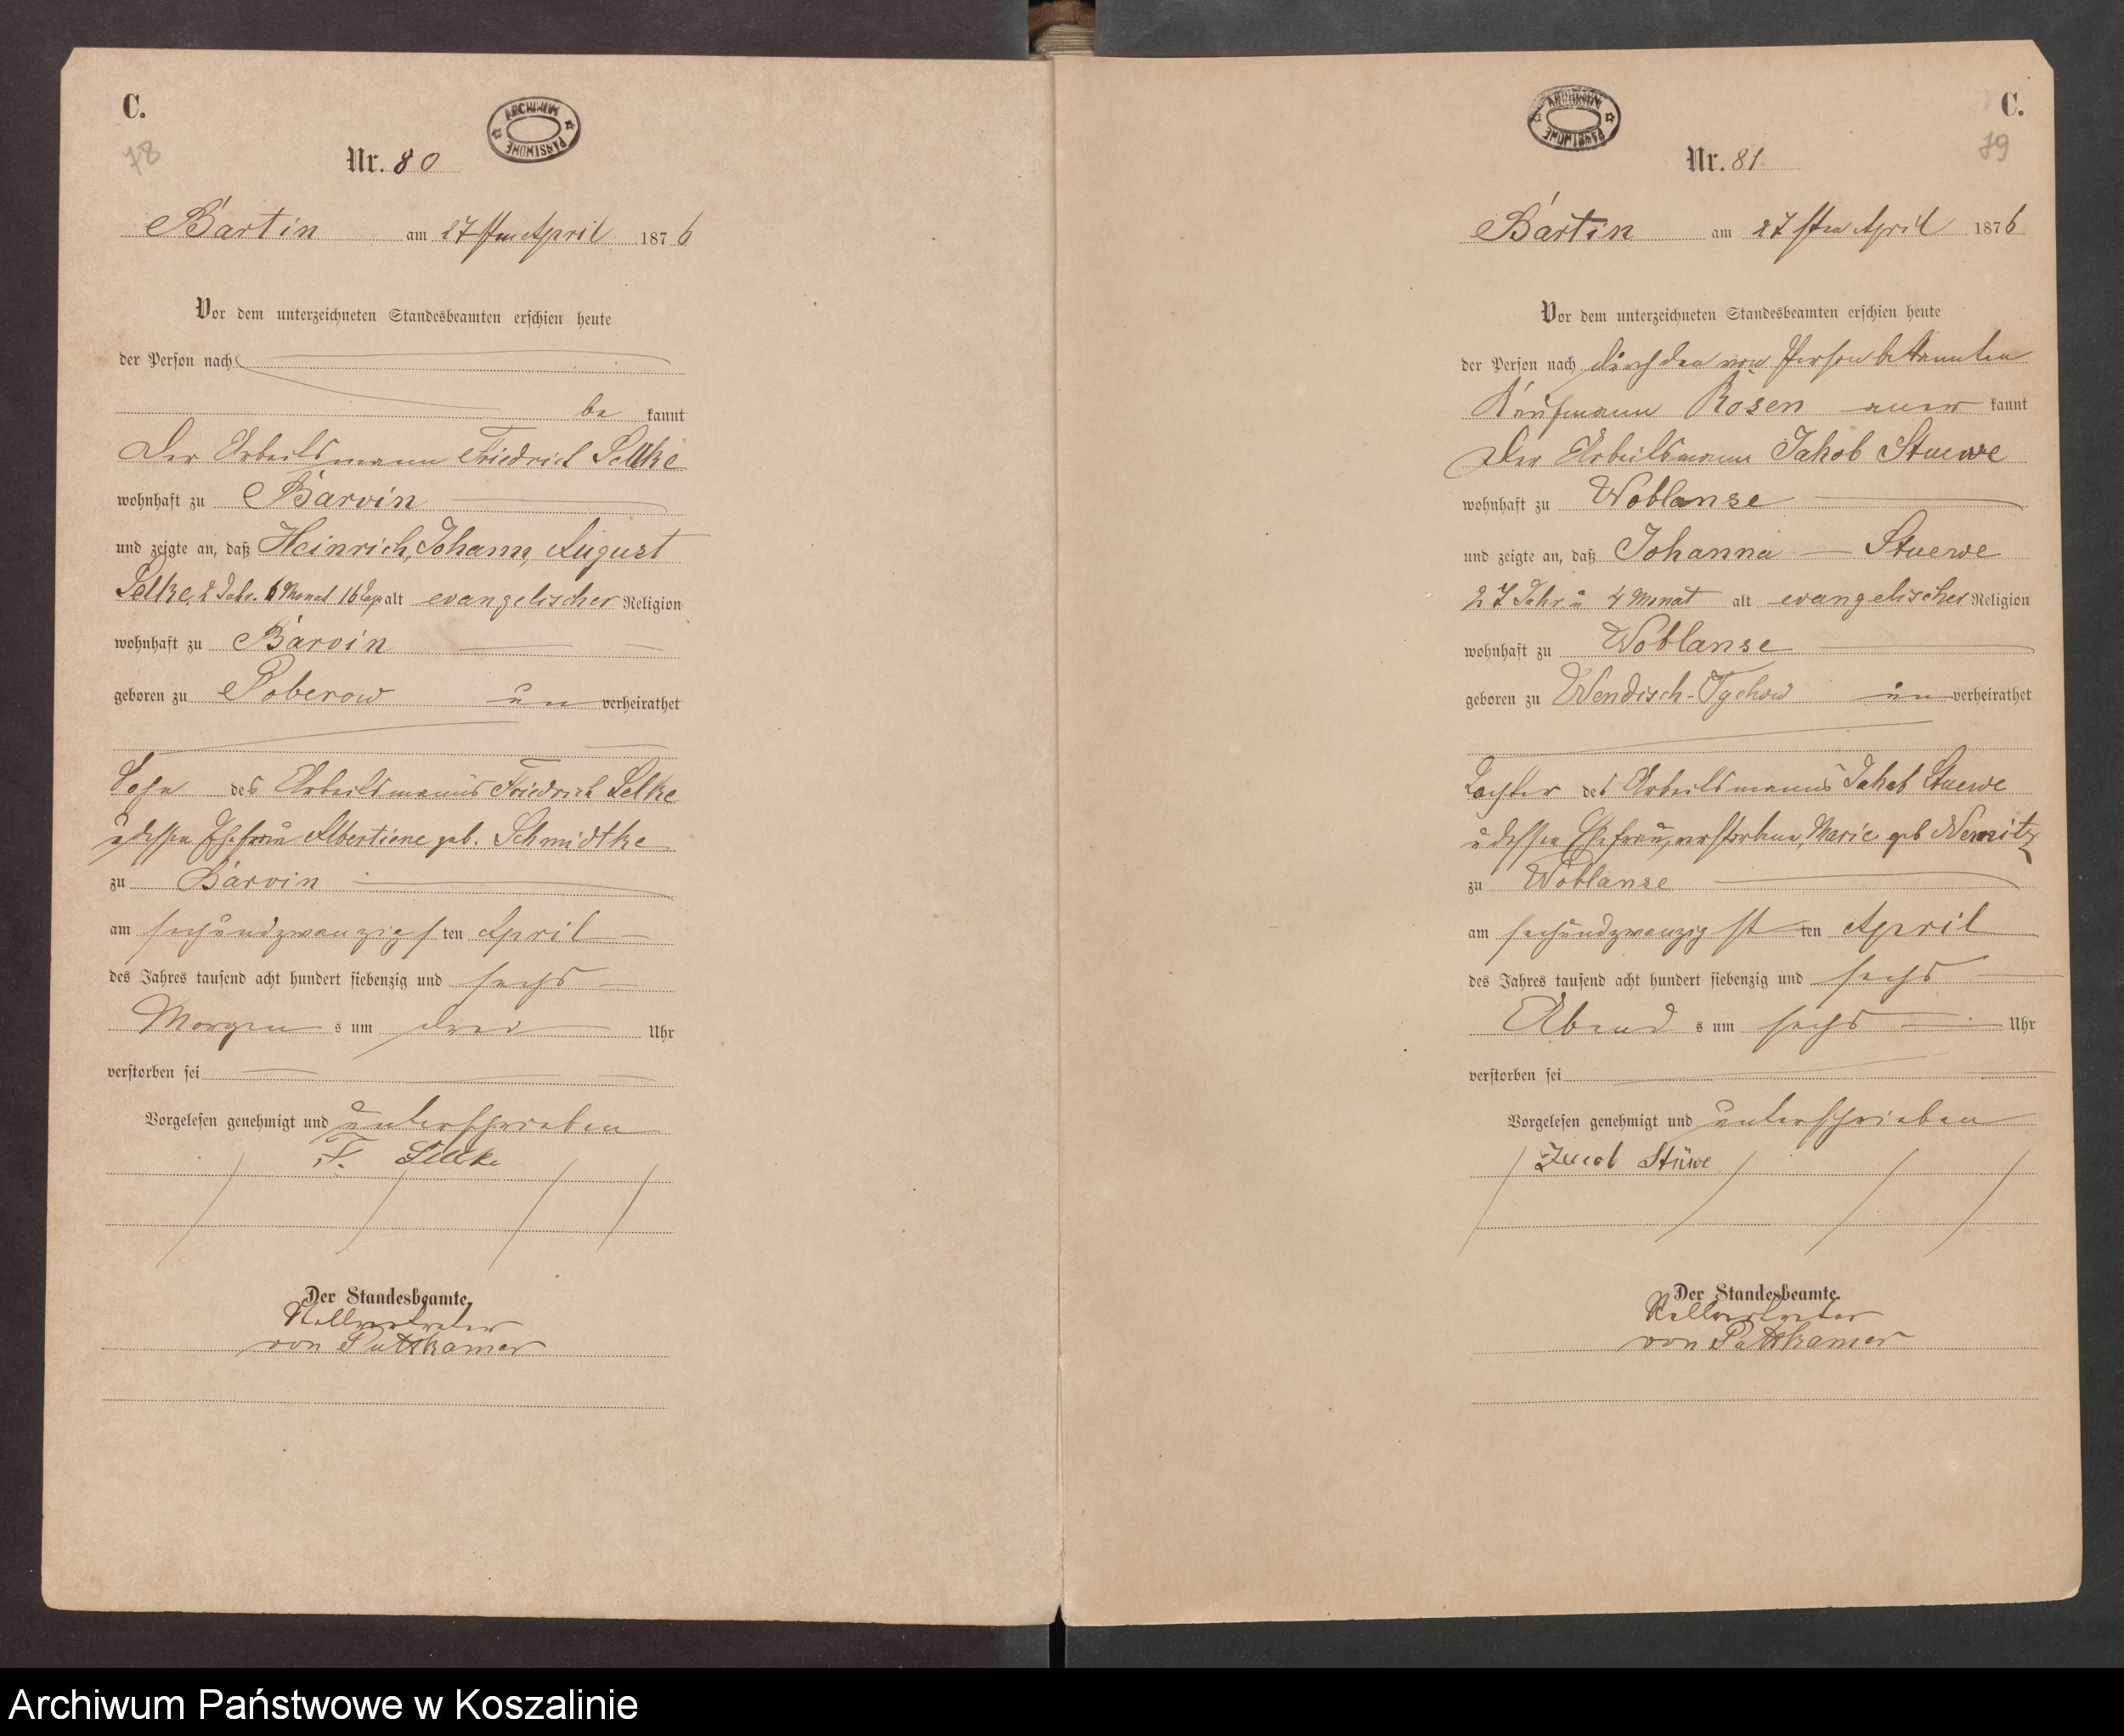 C.
78
ARCHIWUM PAŃSTWOWE
Nr. 80
Bartin am 27sten April 1876
Vor dem unterzeichneten Standesbeamten erschien heute
der Person nach
be kannt
Der Arbeitsmann Friedrich Selke
wohnhaft zu Barvin
und zeigte an, daß Heinrich, Johann, August
Selke, 2 Jahr. 6 Monat 16 Tage alt evangelischer Religion
wohnhaft zu Barvin
geboren zu Poberow un verheirathet
Sohn des Arbeitsmanns Friedrich Selke
u dessen Ehefrau Albertiene geb. Schmidtke
zu Barvin
am sechsundzwanzigs ten April
des Jahres tausend acht hundert siebenzig und sechs
Morgen s um drei Uhr
verstorben sei
Vorgelesen genehmigt und unterschrieben
F. Sellke
Der Standesbeamte
Stellvertreter
von Puttkamer
C.
79
ARCHIWUM PAŃSTWOWE
Nr. 81
Bartin am 27sten April 1876
Vor dem unterzeichneten Standesbeamten erschien heute
der Person nach durch den von Person bekannten
Kaufmann Rosen aner kannt
Der Arbeitsmann Jakob Stuewe
wohnhaft zu Woblanse
und zeigte an, daß Johanna Stuewe
27 Jahr u 4 Monat alt evangelischer Religion
wohnhaft zu Woblanse
geboren zu Wendisch-Tychow un verheirathet
Tochter des Arbeitsmanns Jakob Stuewe
u dessen Ehefrau, verstorbene, Marie geb Nemitz
zu Woblanse
am sechsundzwanzig st ten April
des Jahres tausend acht hundert siebenzig und sechs
Abend s um sechs Uhr
verstorben sei
Vorgelesen genehmigt und unterschrieben
Jacob Stüwe
Der Standesbeamte
Stellvertreter
von Puttkamer
Archiwum Państwowe w Koszalinie